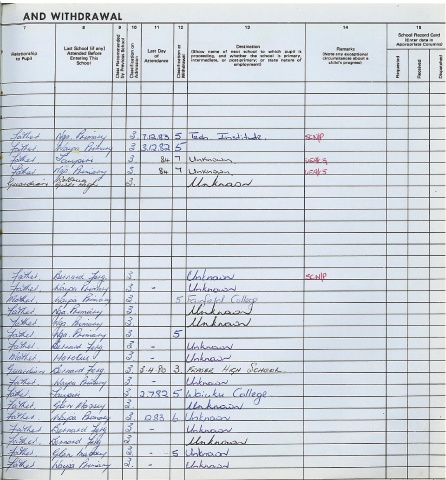 AND WITHDRAWAL
7 8 9 10 11 12 13 14 15
Relationship to Pupil
Last School (if any) Attended Before Entering This School
Last Day of Attendance
Destination
(Show name of next school to which pupil is proceeding, and whether the school is primary, intermediate, or post-primary; or state nature of employment)
Remarks
(Note any exceptional circumstances about a child's progress)
School Record Card
(Enter date in Appropriate Columns)
Requested
Received
Despatched
Father Nga. Primary 3 7.12.83 5 Tech Institute. SCN/P
Father Waipa Primary 3 3.12.82 5
Father Taupiri 3 84 7 Unknown
Father Nga. Primary 3 84 7 Unknown
Guardian 3. Unknown
Father. Bernard Ferg 3 Unknown SCN/P
Father. Waipa Primary 3 - Unknown
Mother Waipa Primary 3 5 Fairfield College
Father Nga. Primary 3 Unknown
Father Nga. Primary 3 Unknown
Father Nga. Primary 3 5
Father Bernard Ferg 3 - Unknown
Mother Horotiu 3 - Unknown
Guardian Bernard Ferg 3 3.4.80 3 Fraser High School
Father Waipa Primary 3 - Unknown
Father Taupiri 3 2.7.82 5 Waiuku College
Father Glen Massey 3 Unknown
Father Waipa Primary 3 10.83 6 Unknown
Father Bernard Ferg 3 - Unknown
Father Bernard Ferg 3 Unknown
Father Glen Massey 3 - 5 Unknown
Father Waipa Primary 3. - Unknown